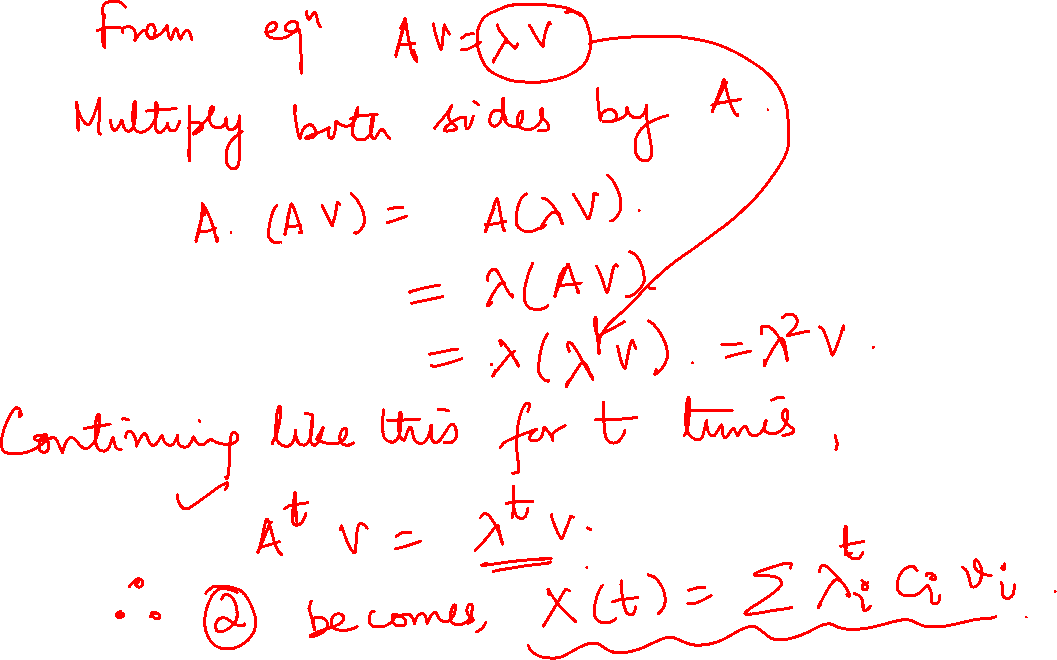 From eqⁿ A V = λ V
Multiply both sides by A.
A. (A V) = A(λ V).
= λ(A V).
= λ(λ V). = λ² V.
Continuing like this for t times,
Aᵗ V = λᵗ V.
∴ ② becomes, X(t) = Σ λᵢᵗ Cᵢ vᵢ.